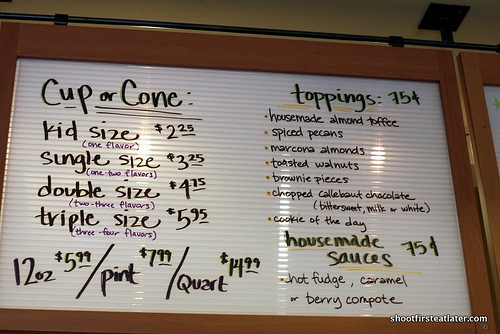 Cup or Cone:
kid size $2.25
(one flavor)
single size $3.25
(one-two flavors)
double size $4.75
(two-three flavors)
triple size $5.95
(three-four flavors)
12oz $5.99 / pint $7.99 / Quart $14.99
toppings: 75¢
• housemade almond toffee
• spiced pecans
• marcona almonds
• toasted walnuts
• brownie pieces
• chopped callebaut chocolate
(bittersweet, milk or white)
• cookie of the day
housemade
sauces 75¢
• hot fudge, caramel
or berry compote
shootfirsteatlater.com